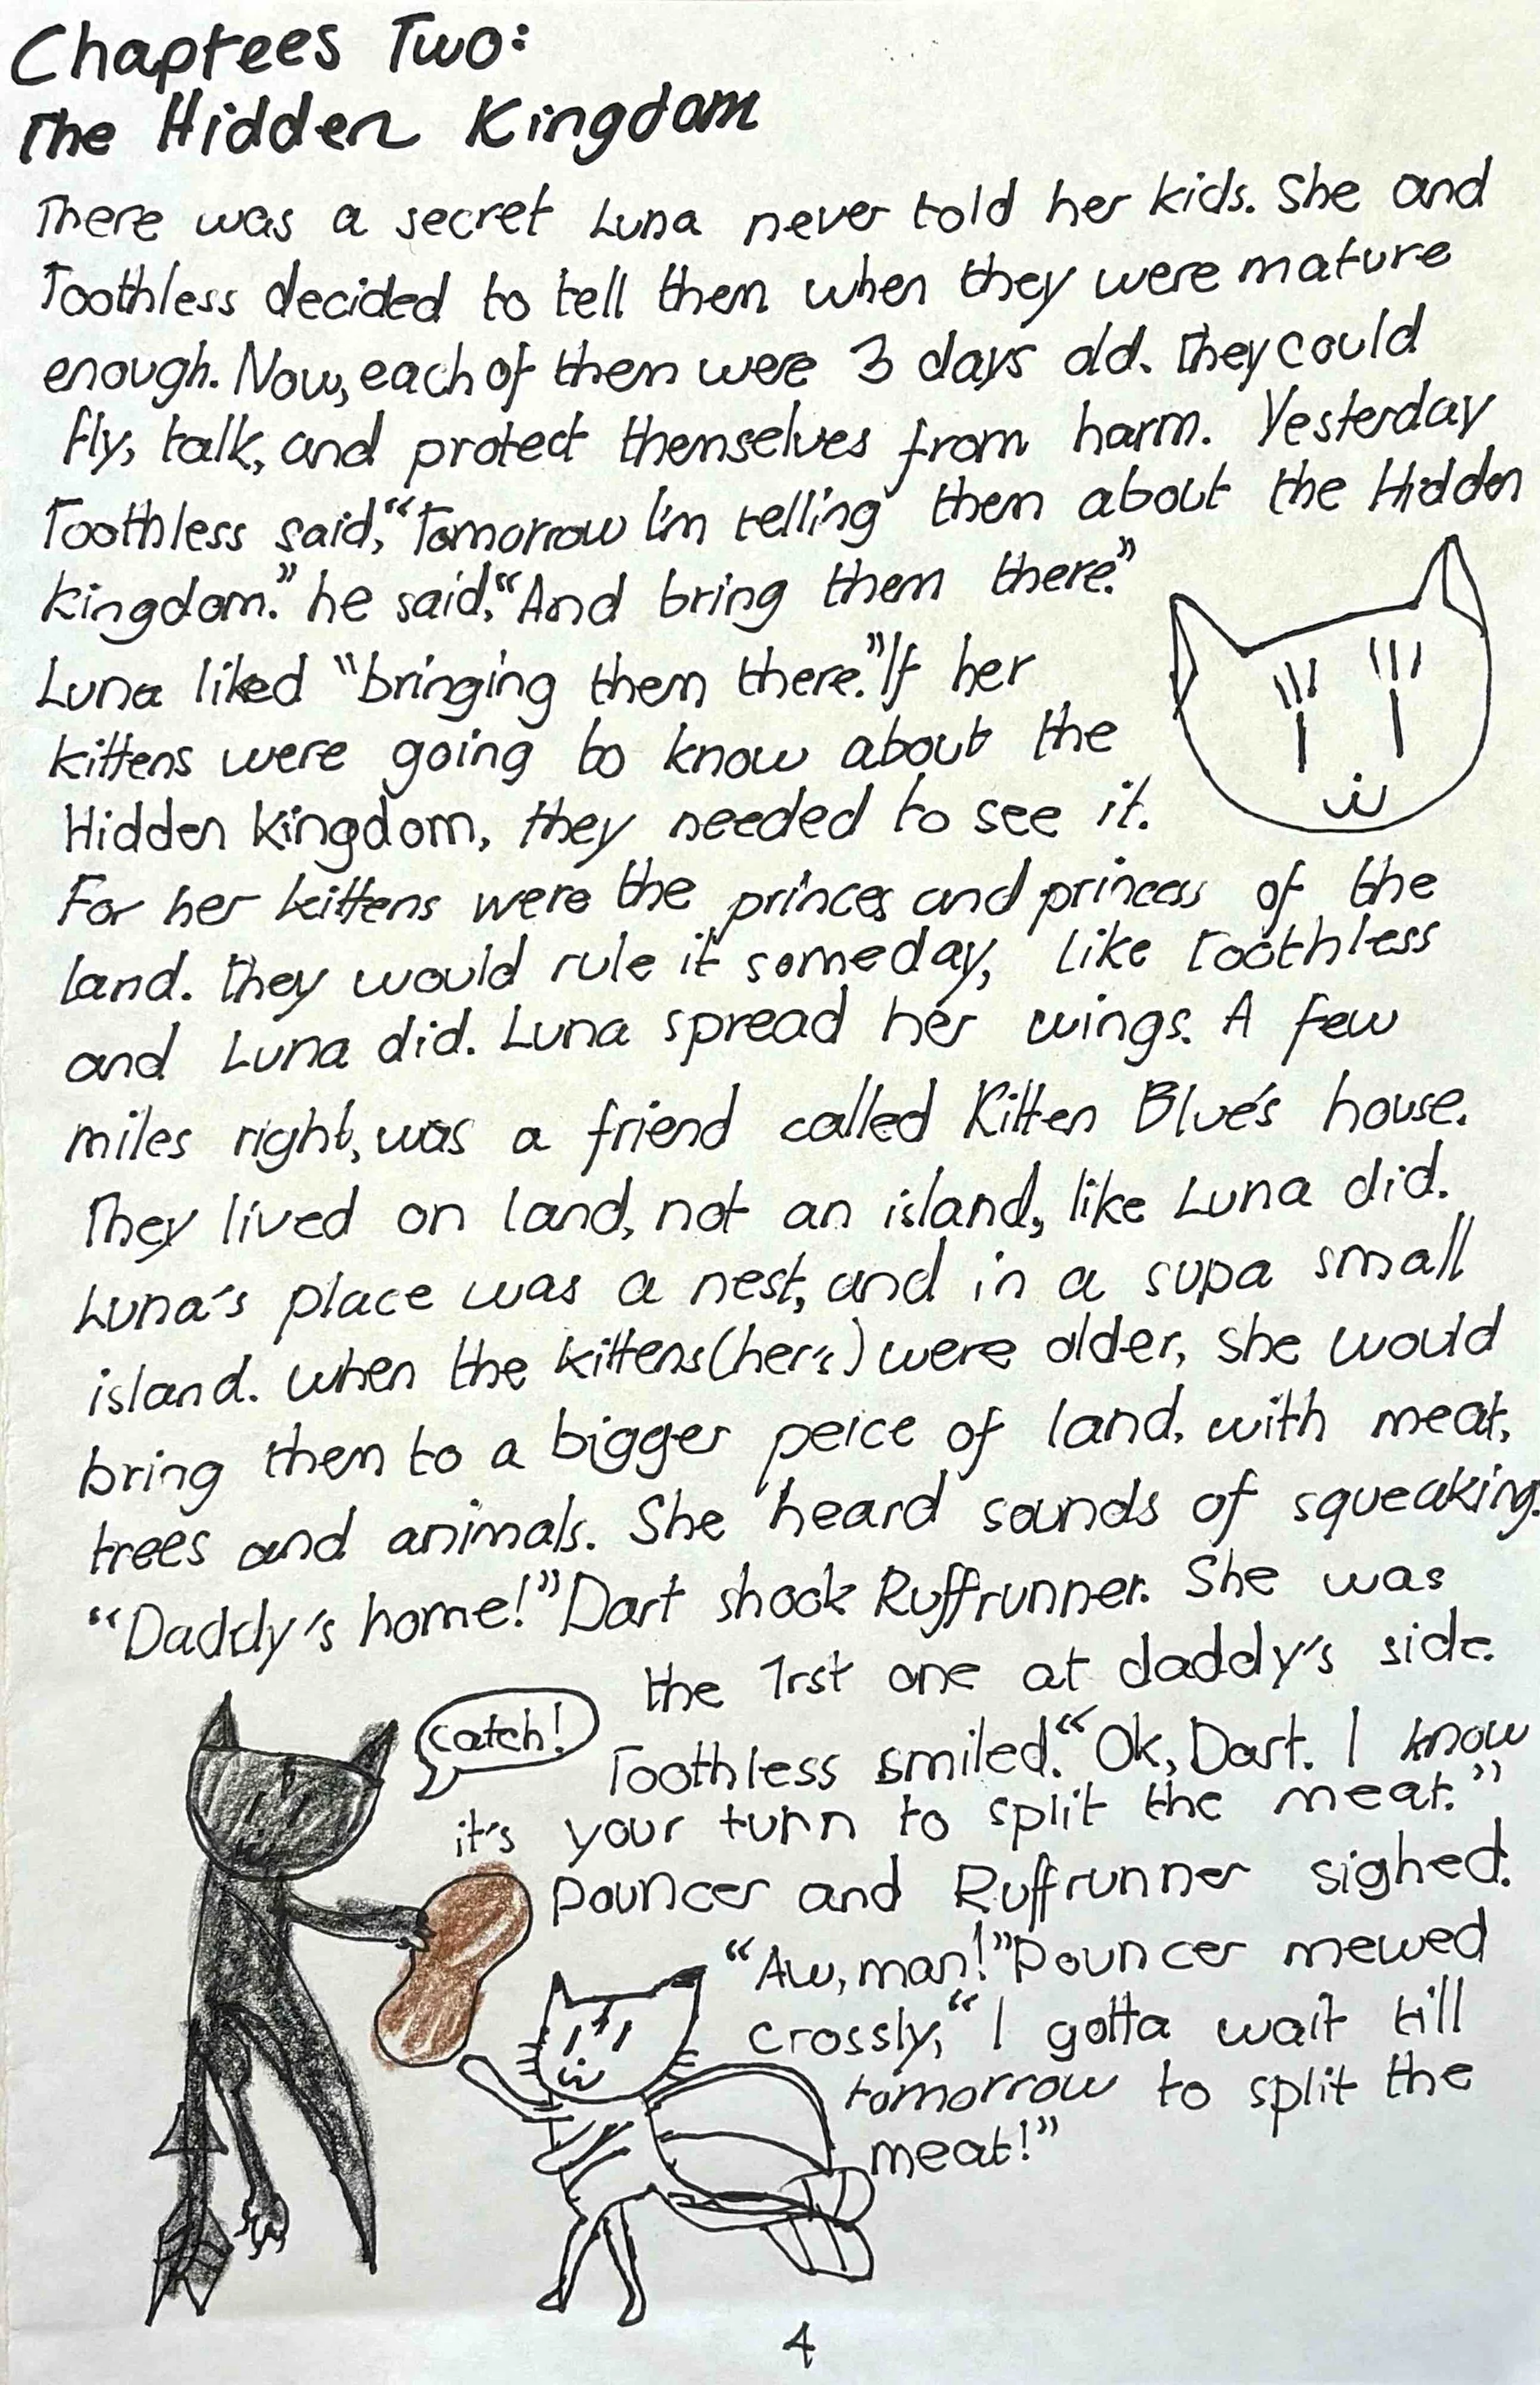 Chaptees Two:
The Hidden Kingdom
There was a secret Luna never told her kids. She and
Toothless decided to tell them when they were mature
enough. Now, each of them were 3 days old. They could
fly, talk, and protect themselves from harm. Yesterday
Toothless said, "Tomorrow I'm telling them about the Hidden
kingdom." he said, "And bring them there."
Luna liked "bringing them there." If her
kittens were going to know about the
Hidden kingdom, they needed to see it.
For her kittens were the princes and princess of the
land. They would rule it someday, like Toothless
and Luna did. Luna spread her wings. A few
miles right, was a friend called Kitten Blue's house.
They lived on land, not an island, like Luna did.
Luna's place was a nest, and in a supa small
island. When the kittens (her's) were older, she would
bring them to a bigger peice of land, with meat,
trees and animals. She heard sounds of squeaking.
"Daddy's home!" Dart shook Ruffrunner. She was
the 1rst one at daddy's side.
catch!
Toothless smiled. "Ok, Dart. I know
it's your turn to split the meat."
Pouncer and Ruffrunner sighed.
"Aw, man!" Pouncer mewed
crossly, "I gotta wait till
tomorrow to split the
meat!"
4